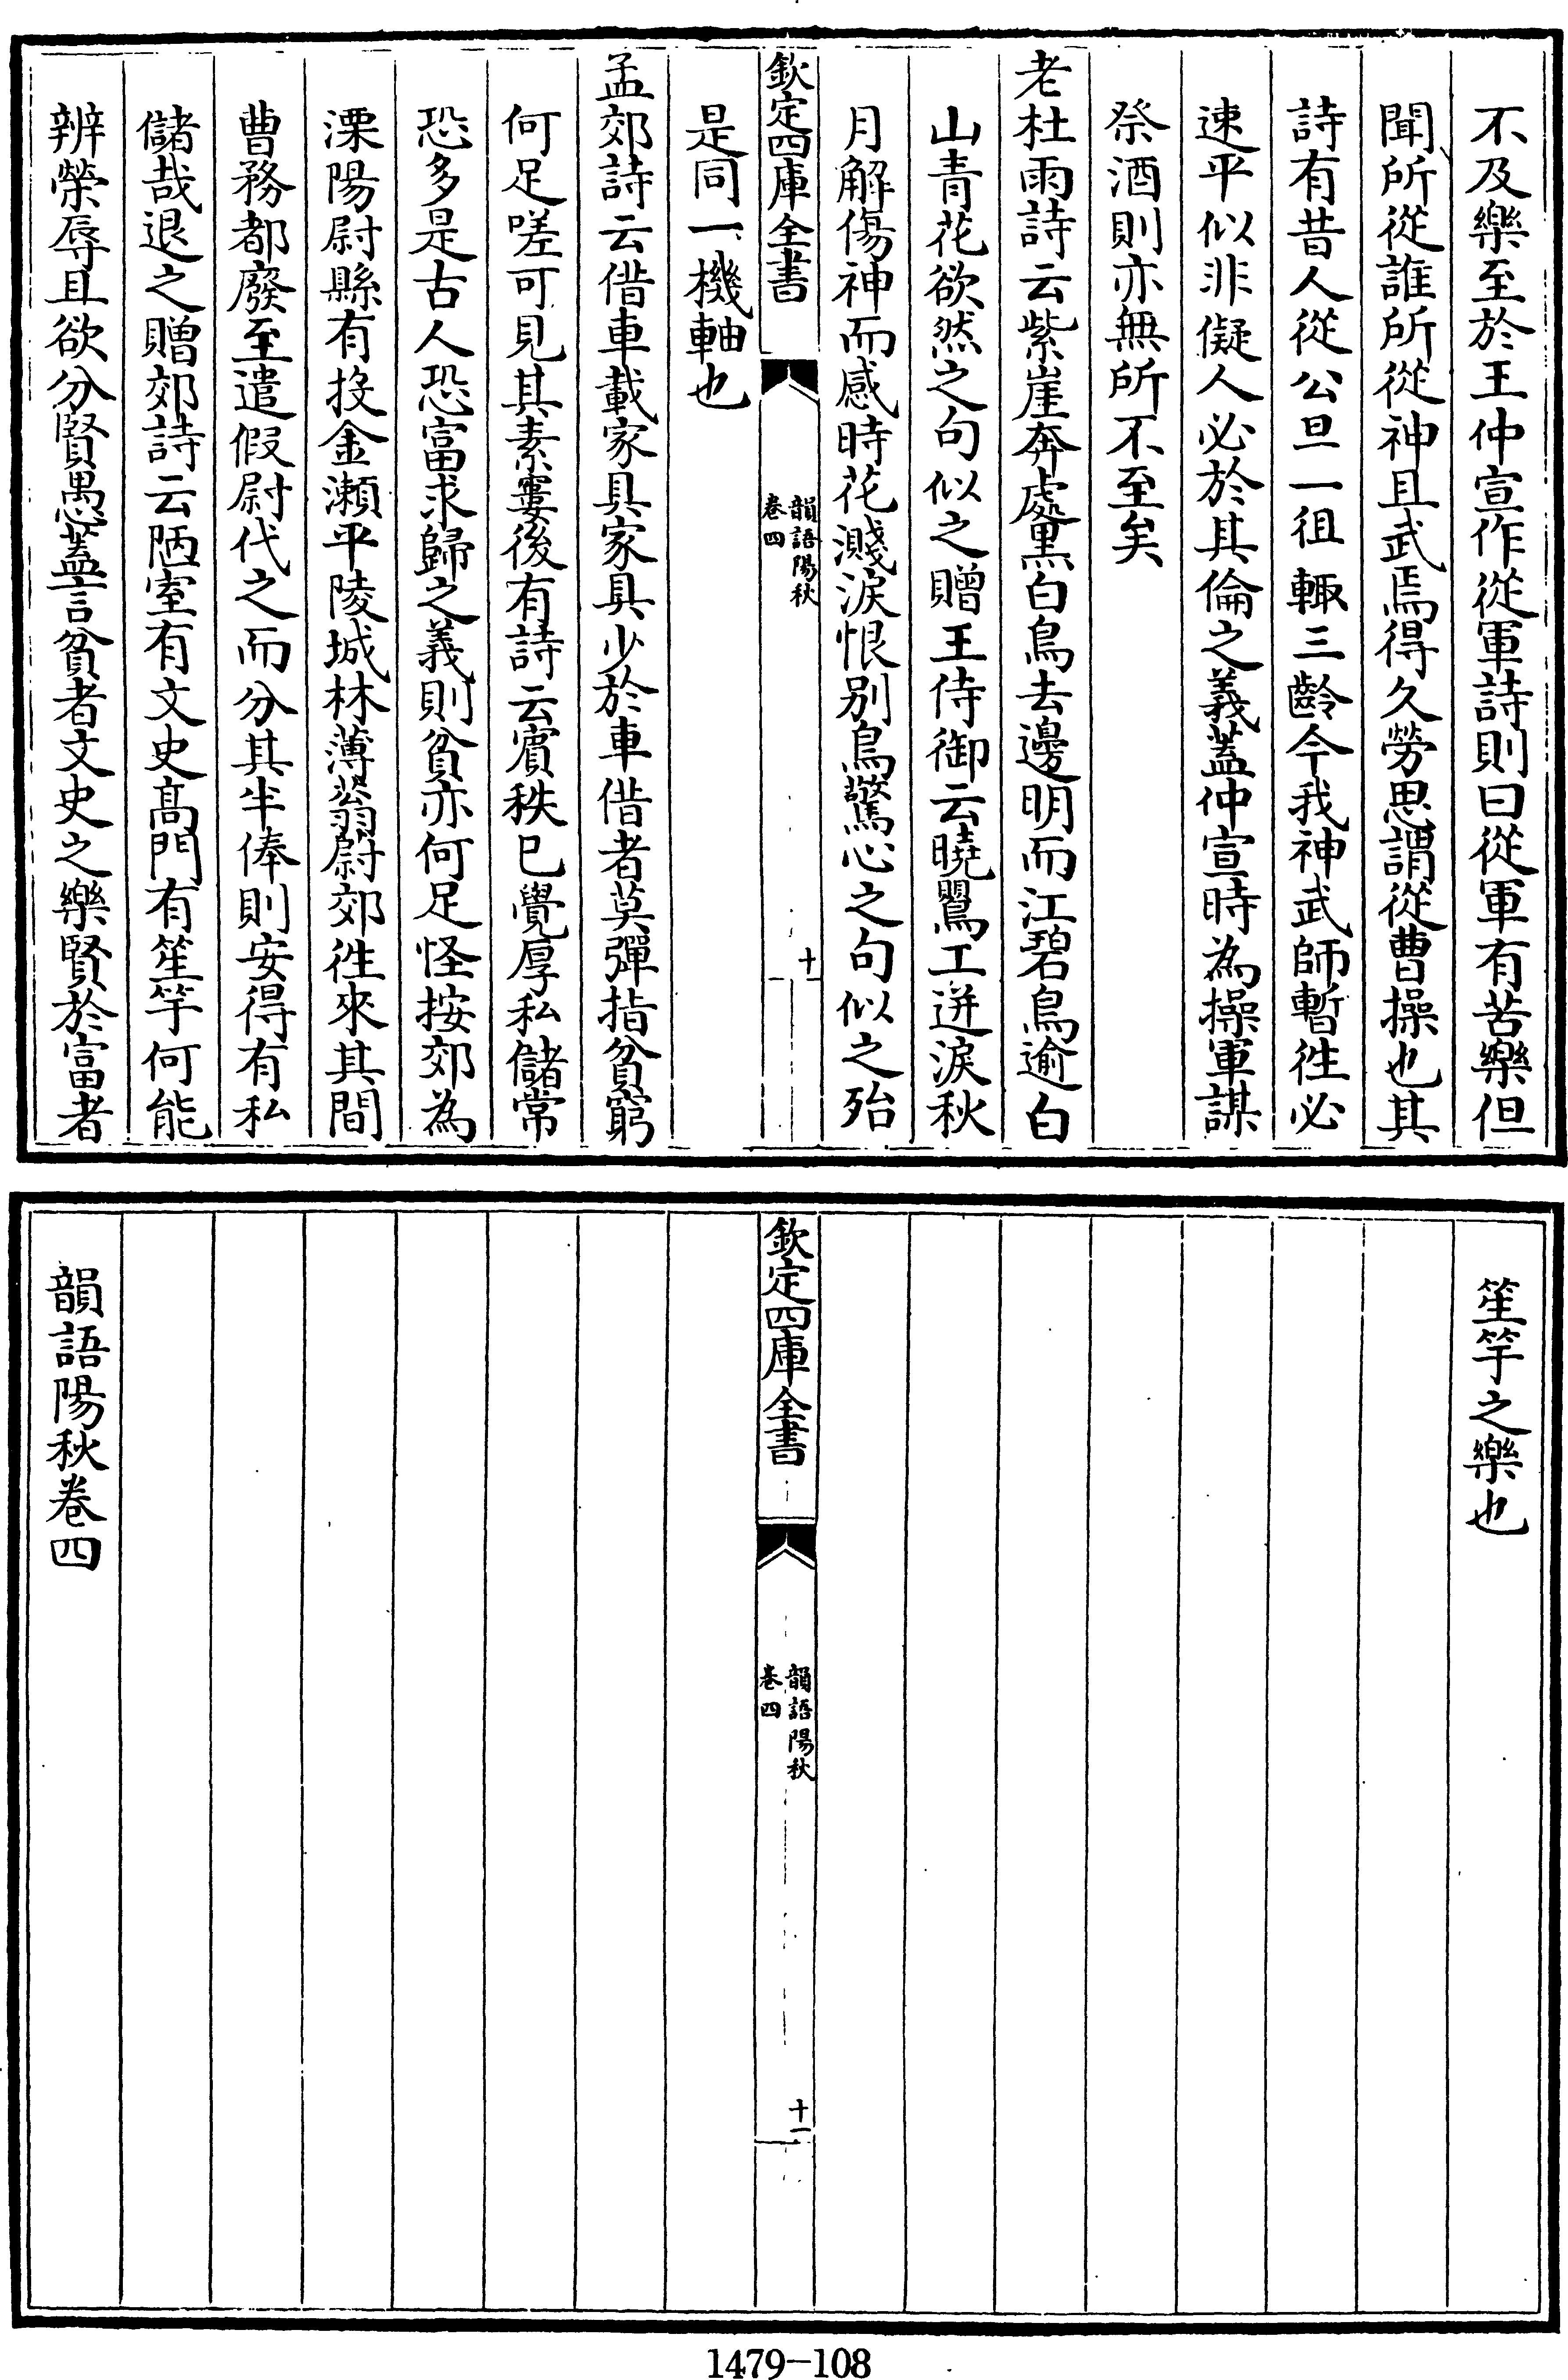 不及樂至於王仲宣作從軍詩則曰從軍有苦樂但
聞所從誰所從神且武焉得久勞思謂從曹操也其
詩有昔人從公旦一徂輙三齡今我神武師暫徃必
速平似非儗人必於其倫之義蓋仲宣時為操軍謀
祭酒則亦無所不至矣
老杜雨詩云紫崖奔處黒白鳥去邊明而江碧鳥逾白
山青花欲然之句似之贈王侍御云曉鸎工迸淚秋
月解傷神而感時花濺淚恨别鳥驚心之句似之殆
欽定四庫全書
韻語陽秋
卷四
十
是同一機軸也
孟郊詩云借車載家具家具少於車借者莫彈指貧窮
何足嗟可見其素窶後有詩云賔秩已覺厚私儲常
恐多是古人恐富求歸之義則貧亦何足怪按郊為
溧陽尉縣有投金瀬平陵城林薄蓊尉郊徃來其間
曹務都廢至遣假尉代之而分其半俸則安得有私
儲哉退之贈郊詩云陋室有文史髙門有笙竽何能
辨榮辱且欲分賢愚蓋言貧者文史之樂賢於富者
笙竽之樂也
欽定四庫全書
韻語陽秋
卷四
十一
韻語陽秋卷四
1479-108